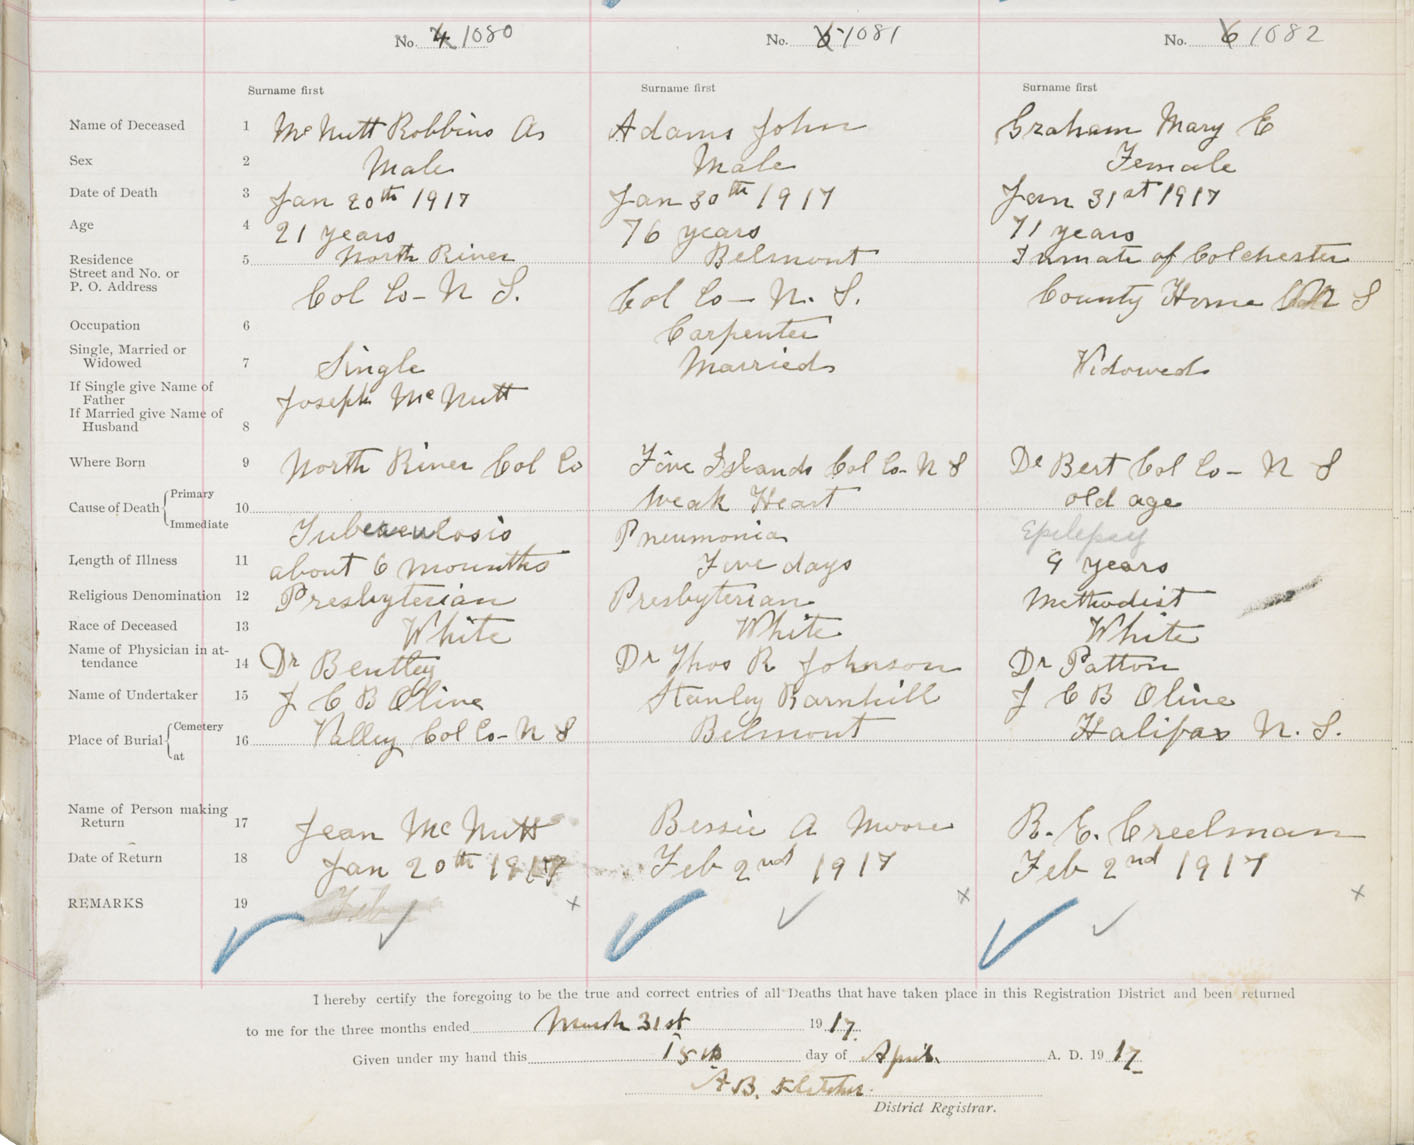 No. 4 1080 No. 5 1081 No. 6 1082
Surname first Surname first Surname first
Name of Deceased 1 McNutt Robbins As Adams John Graham Mary E
Sex 2 Male Male Female
Date of Death 3 Jan 20th 1917 Jan 30th 1917 Jan 31st 1917
Age 4 21 years 76 years 71 years
Residence 5 North River Belmont Inmate of Colchester
Street and No. or
P. O. Address Col Co - N S. Col Co - N. S. County Home N S
Occupation 6 Carpenter
Single, Married or
Widowed 7 Single Married Widowed
If Single give Name of
Father Joseph McNutt
If Married give Name of
Husband 8
Where Born 9 North River Col Co Five Islands Col Co - N S De Bert Col Co - N S
Primary Weak Heart old age
Cause of Death 10
Immediate Tuberculosis Pneumonia Epilepsy
Length of Illness 11 about 6 mounths Five days 9 years
Religious Denomination 12 Presbyterian Presbyterian Methodist
Race of Deceased 13 White White White
Name of Physician in at-
tendance 14 Dr Bentley Dr Thos R Johnson Dr Patton
Name of Undertaker 15 J C B Olive Stanley Barnhill J C B Olive
Cemetery
Place of Burial 16 Valley Col Co - N S Belmont Halifax N. S.
at
Name of Person making
Return 17 Jean McNutt Bessie A Moore R. E. Creelman
Date of Return 18 Jan 20th 1917 Feb 2nd 1917 Feb 2nd 1917
REMARKS 19 Feb
I hereby certify the foregoing to be the true and correct entries of all Deaths that have taken place in this Registration District and been returned
to me for the three months ended March 31st 1917.
Given under my hand this 18th day of April. A. D. 1917
A B. Fletcher.
District Registrar.